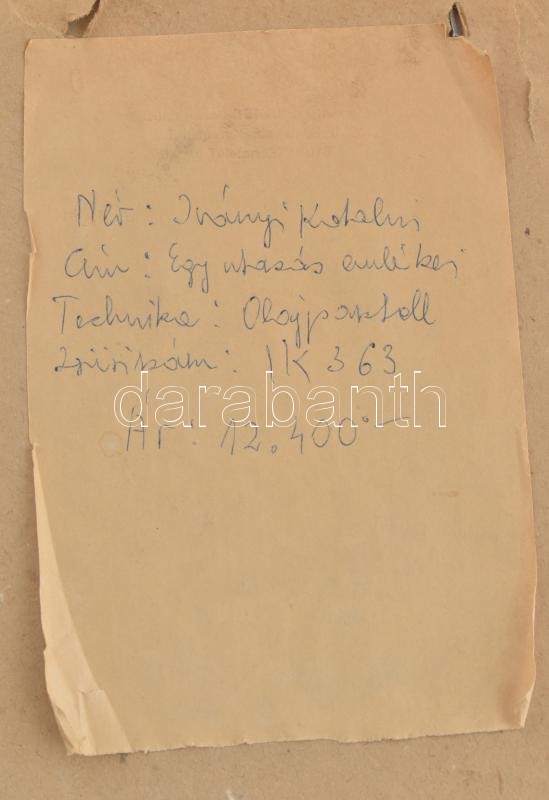 Név: Iványi Katalin
Cím: Egy utazás emlékei
Technika: Olajpasztell
Zsüriszám: IK 363
darabanth
Ár: 12.400.-